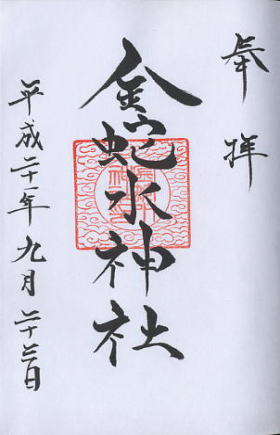 奉拝
金蛇水神社
平成二十一年九月二十三日